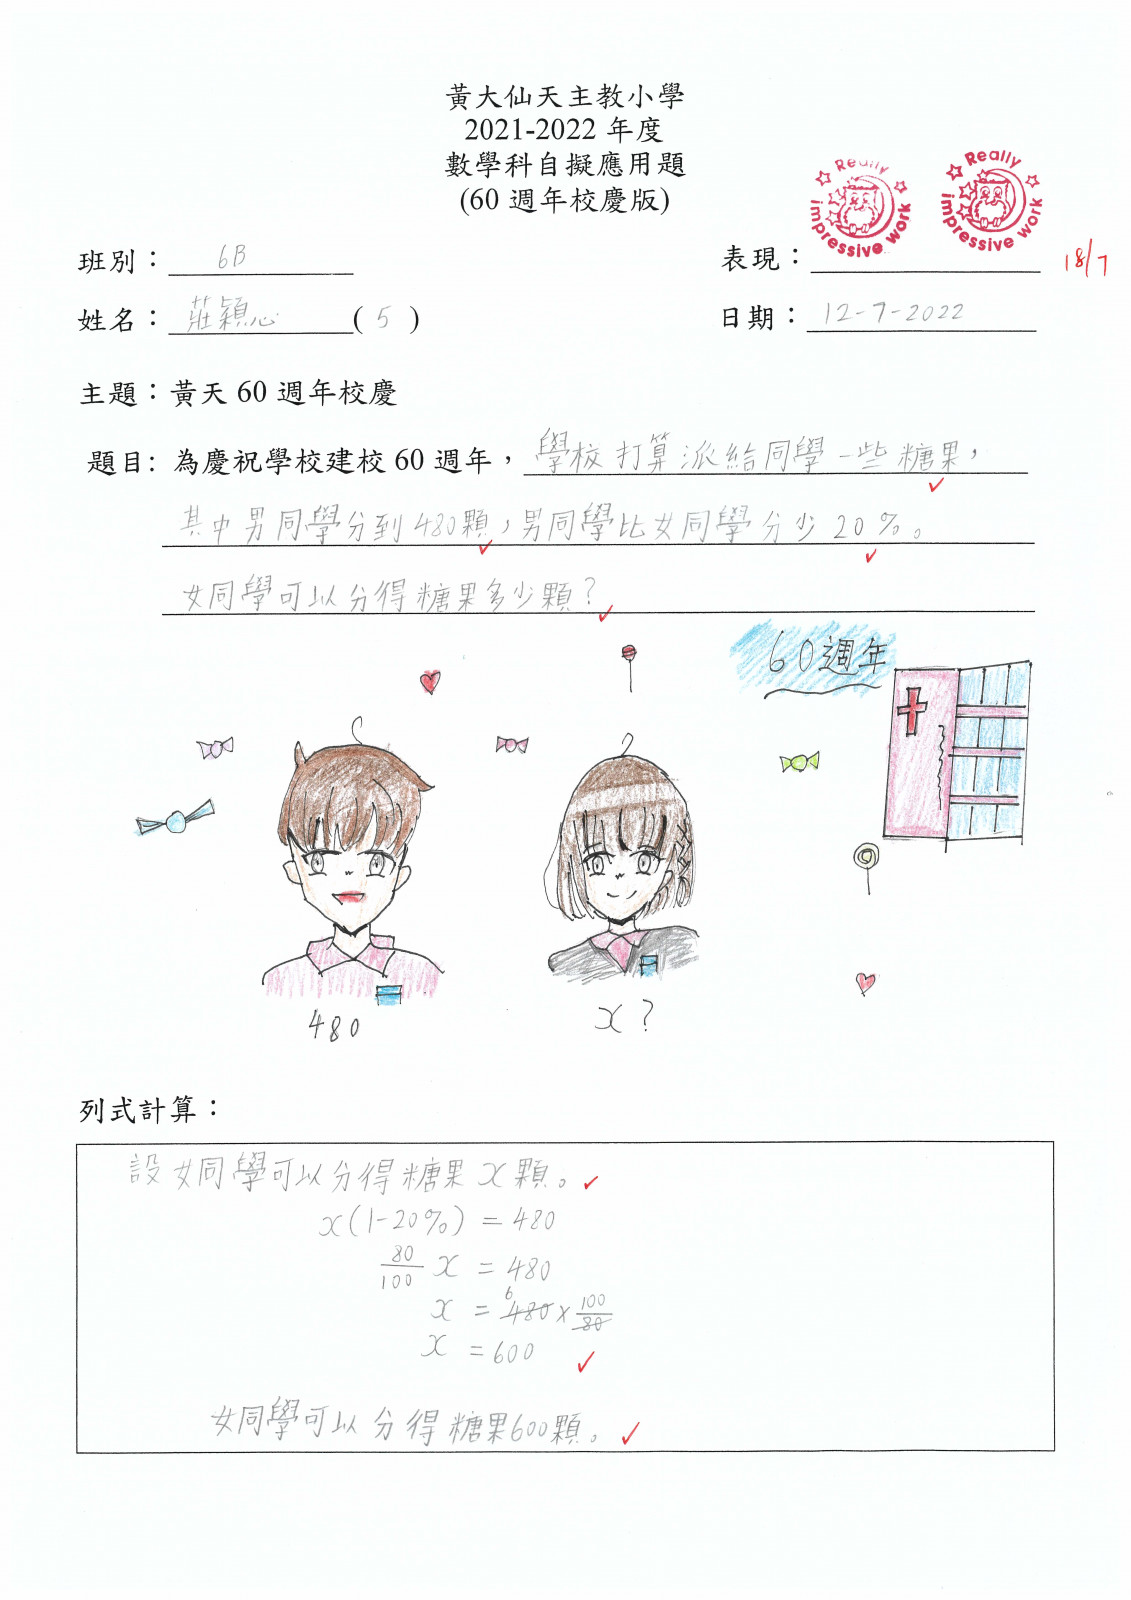 黃大仙天主教小學
2021-2022 年度
數學科自擬應用題
(60 週年校慶版)
Really impressive work
Really impressive work
班別：6B
表現：
18/7
姓名：莊穎心(5)
日期：12-7-2022
主題：黃天 60 週年校慶
題目: 為慶祝學校建校 60 週年，學校打算派給同學一些糖果，
其中男同學分到480顆，男同學比女同學分少20%。
女同學可以分得糖果多少顆？
60週年
480
x?
列式計算：
設女同學可以分得糖果x顆。
x(1-20%) = 480
80/100 x = 480
x = 480 6 × 100/80
x = 600
女同學可以分得糖果600顆。